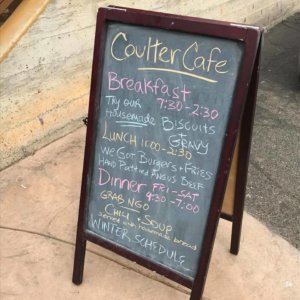 Coulter Cafe
Breakfast
Try our 7:30-2:30
Housemade Biscuits
+ Gravy
Lunch 11:00-2:30
We Got Burgers + Fries
Hand Pattied Angus Beef
Dinner Fri-Sat
4:30-7:00
Grab N Go
Chili + Soup
served with housemade bread
Winter Schedule